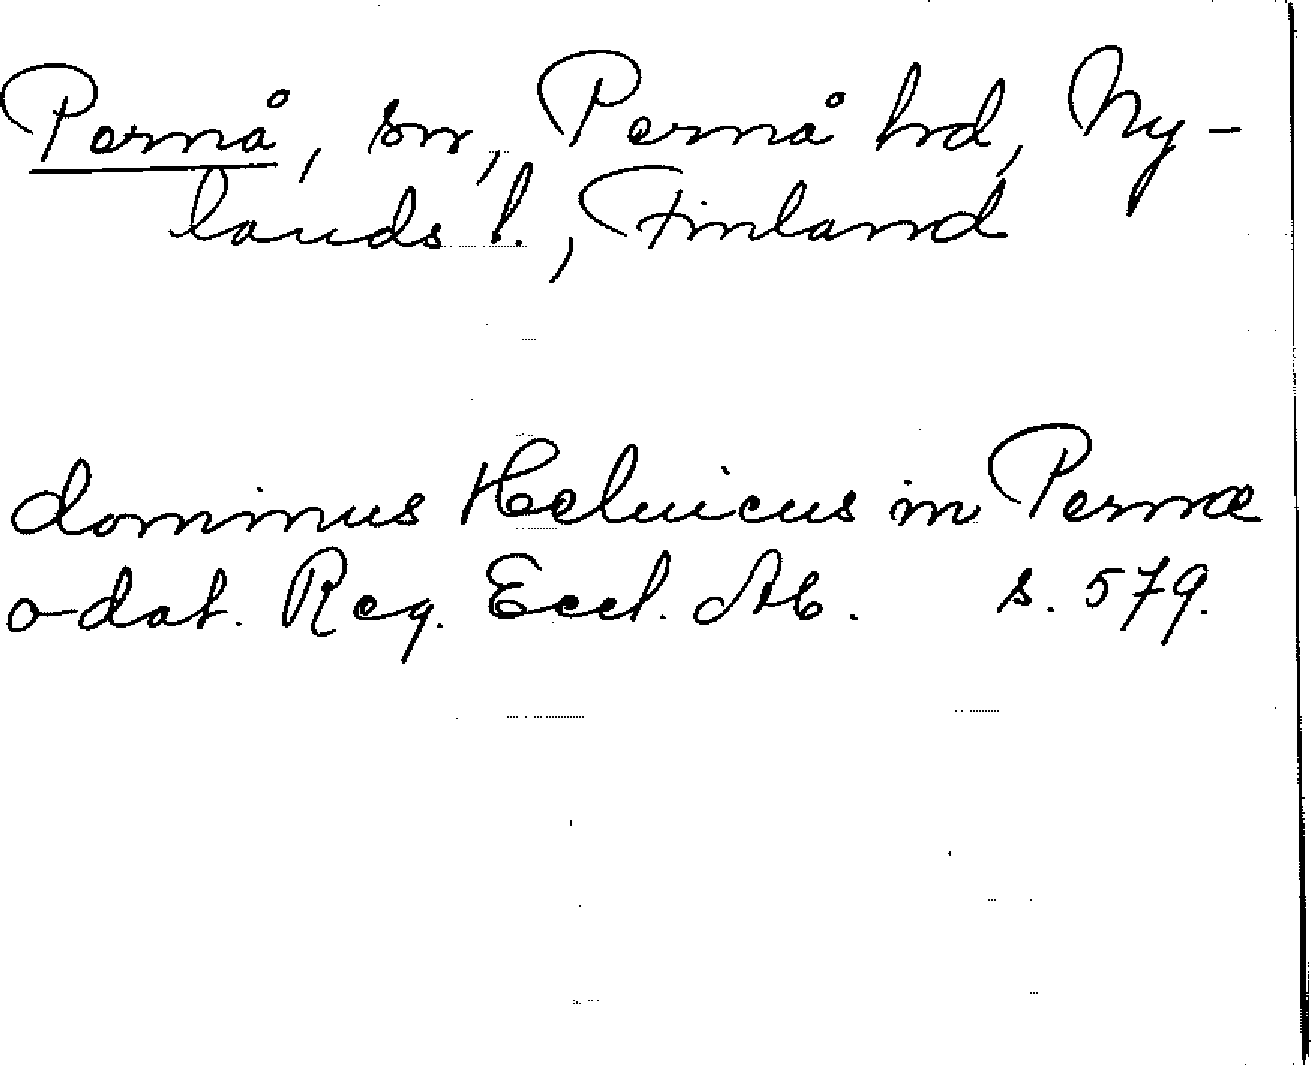 Pernå, sn, Pernå hd, Ny-
lands l., Finland
dominus Heluicus in Pernæ
odat. Reg. Eccl. Ab. s. 579.